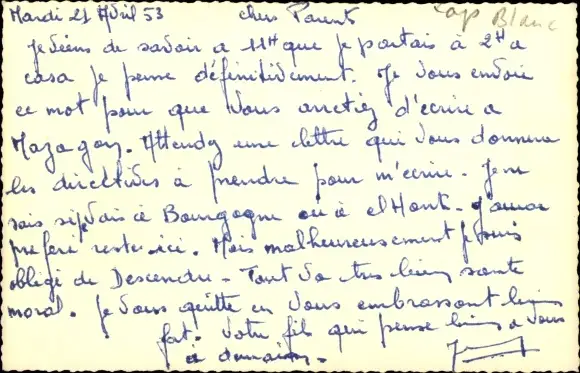 Mardi 21 Avril 53 chers Parents Cap Blanc
je viens de savoir a 11H que je partais à 2H a
casa je pense définitivement. Je vous envoie
ce mot pour que vous arretiez d'écrire a
Mazagan. Attendez une lettre qui vous donnera
les directives à prendre pour m'écrire. Je ne
sais si je vais à Bourgogne ou à el Hank. J'aurai
préféré rester ici. Mais malheureusement je suis
obligé de Descendre - Tout va très bien santé
moral. Je vous quitte en vous embrassant bien
fort. Votre fils qui pense bien a vous
a demain.